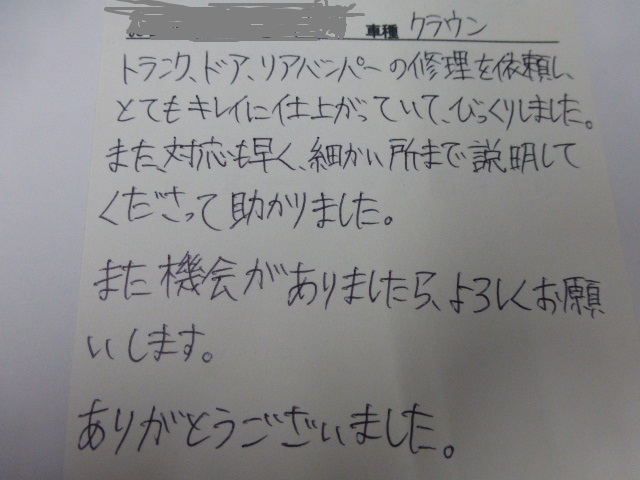 車種 クラウン
トランク、ドア、リアバンパーの修理を依頼し、
とてもキレイに仕上がっていて、びっくりしました。
また、対応も早く、細かい所まで説明して
くださって助かりました。
また機会がありましたら、よろしくお願
いします。
ありがとうございました。